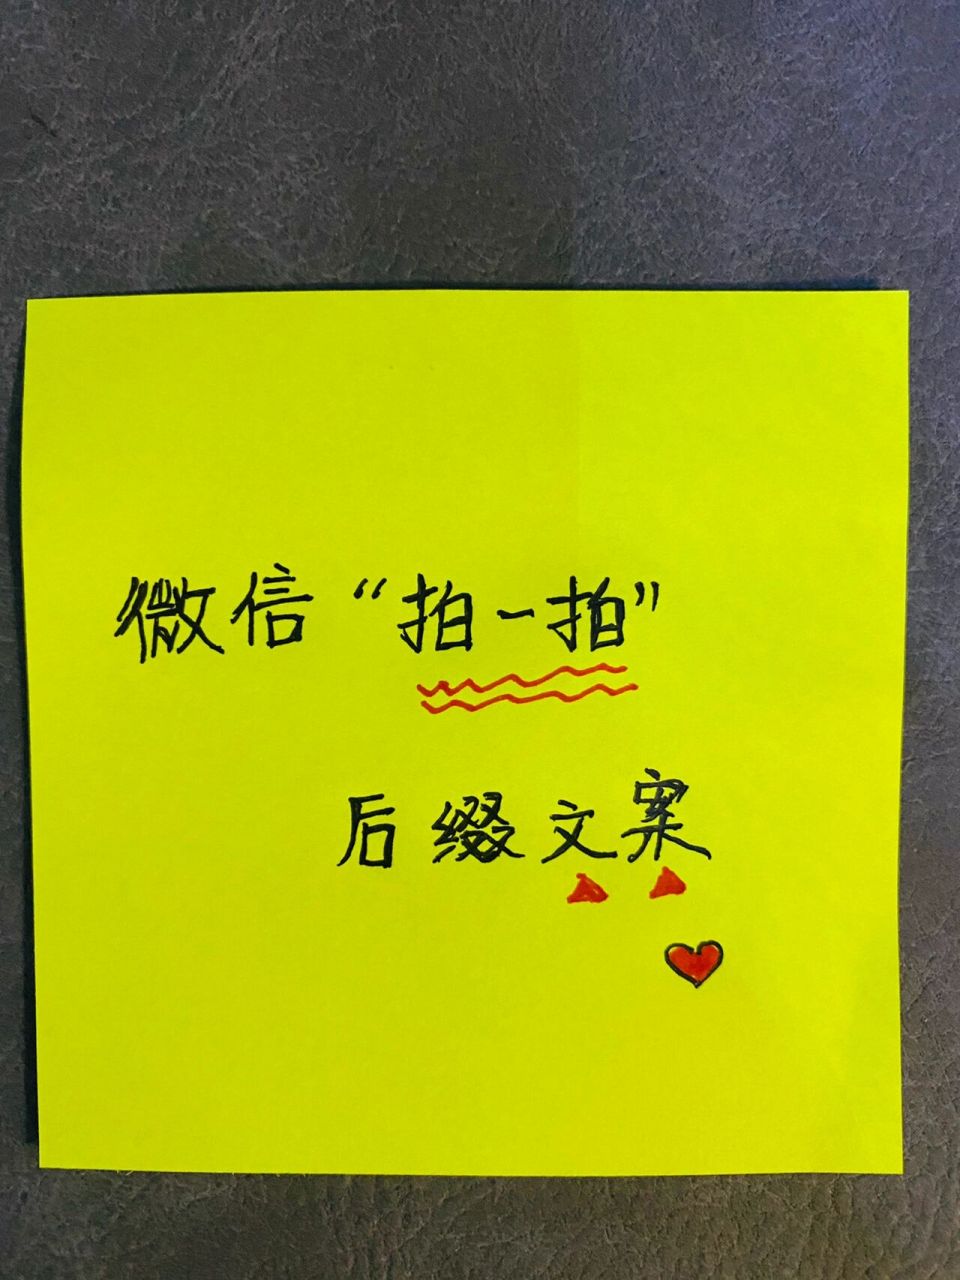 微信“拍一拍”
后缀文案